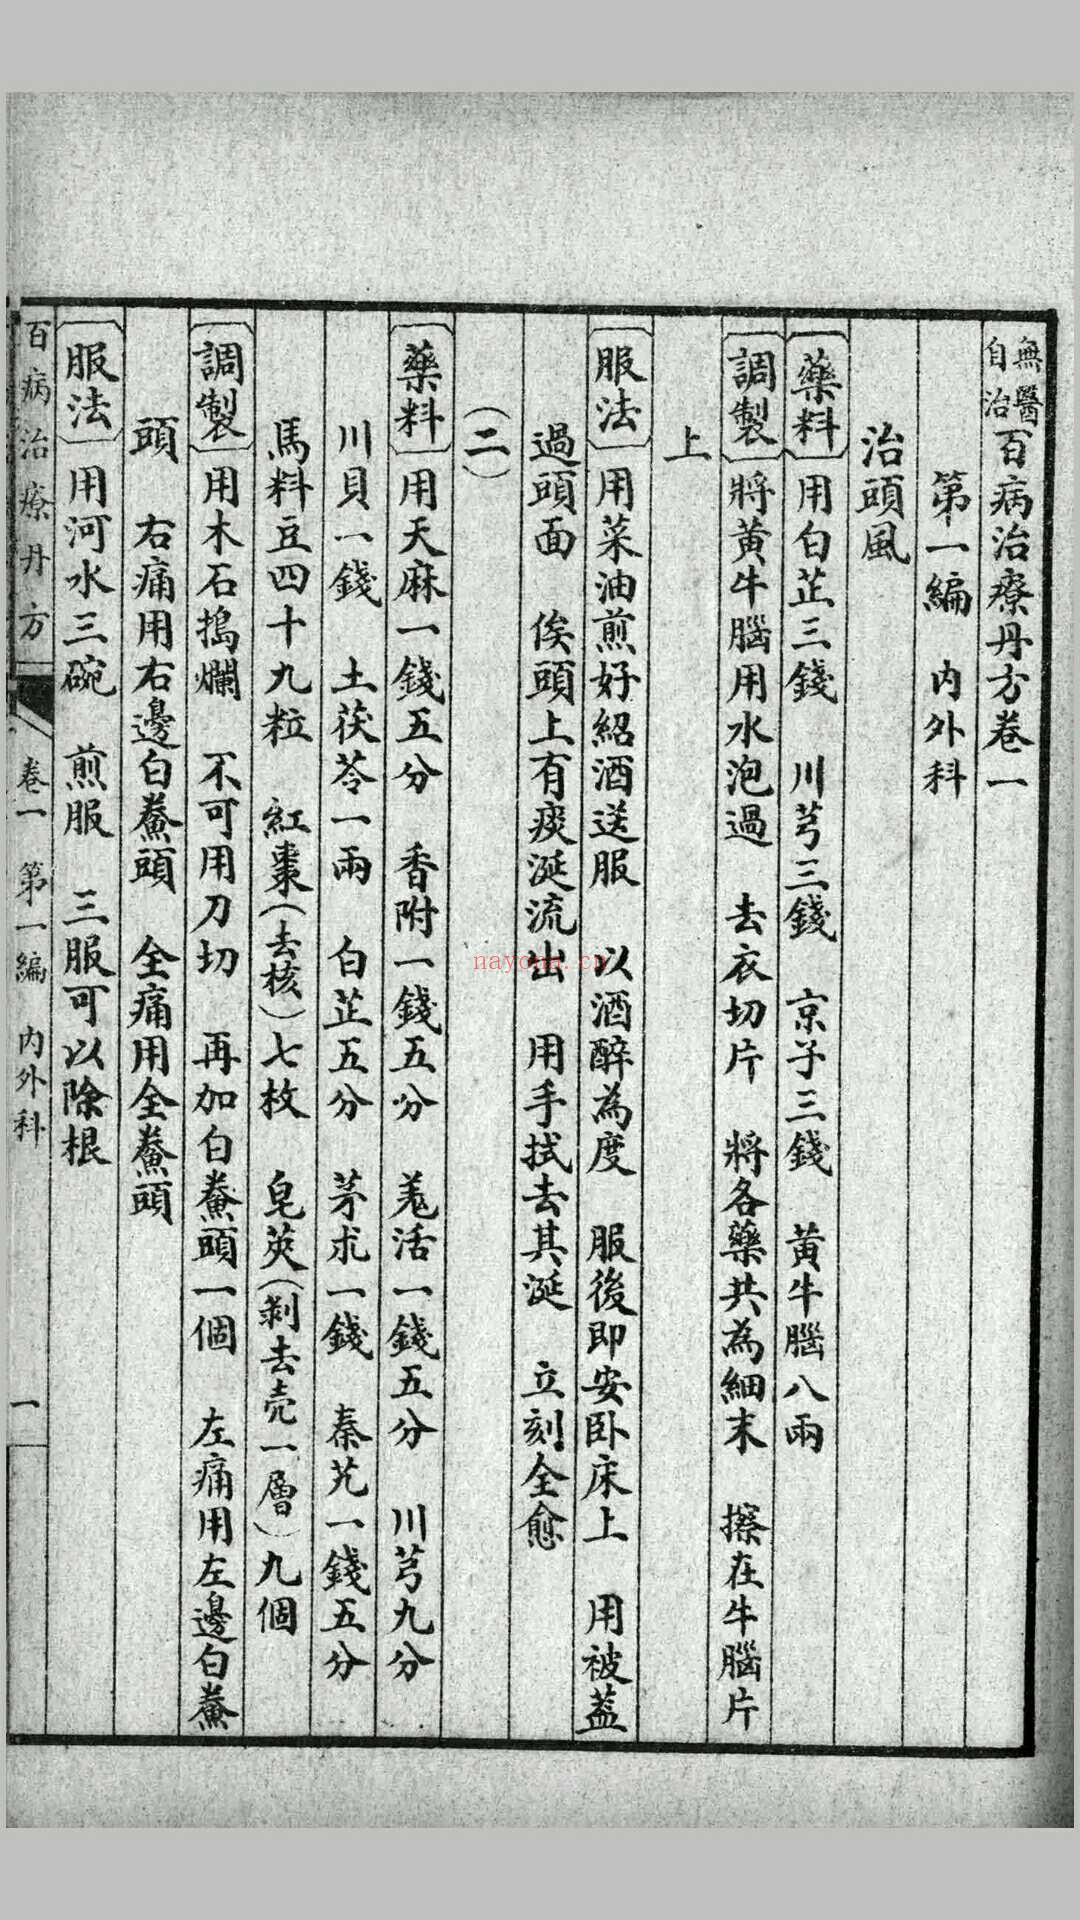 無醫自治百病治療丹方卷一
第一編　內外科
治頭風
〔藥料〕用白芷三錢　川芎三錢　京子三錢　黃牛腦八兩
〔調製〕將黃牛腦用水泡過　去衣切片　將各藥共為細末　擦在牛腦片
上
〔服法〕用菜油煎好紹酒送服　以酒醉為度　服後即安卧床上　用被蓋
過頭面　俟頭上有痰涎流出　用手拭去其涎　立刻全愈
（二）
〔藥料〕用天麻一錢五分　香附一錢五分　羗活一錢五分　川芎九分
川貝一錢　土茯苓一兩　白芷五分　茅朮一錢　秦艽一錢五分
馬料豆四十九粒　紅棗（去核）七枚　皂莢（剝去壳一層）九個
〔調製〕用木石搗爛　不可用刀切　再加白鯗頭一個　左痛用左邊白鯗
頭　右痛用右邊白鯗頭　全痛用全鯗頭
〔服法〕用河水三碗　煎服　三服可以除根
百病治療丹方　卷一　第一編　內外科　一
nayona.cn